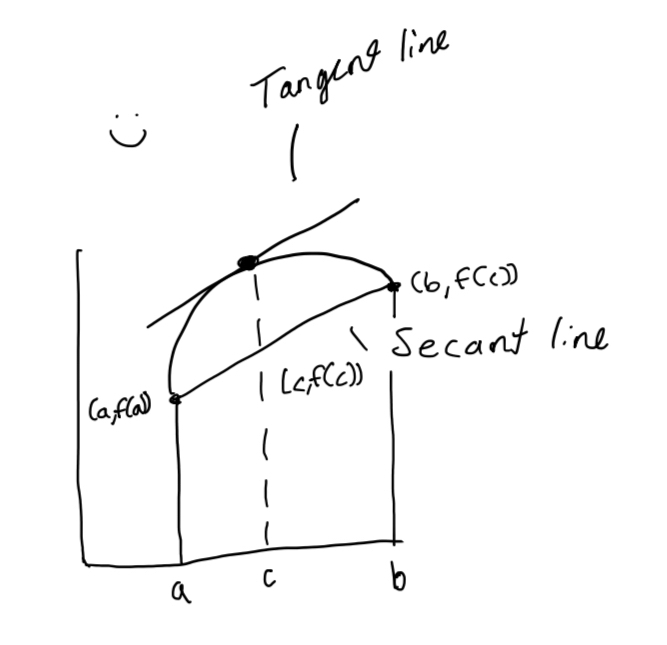 Tangent line
(b,f(c))
Secant line
(c,f(c))
(a,f(a))
a
c
b